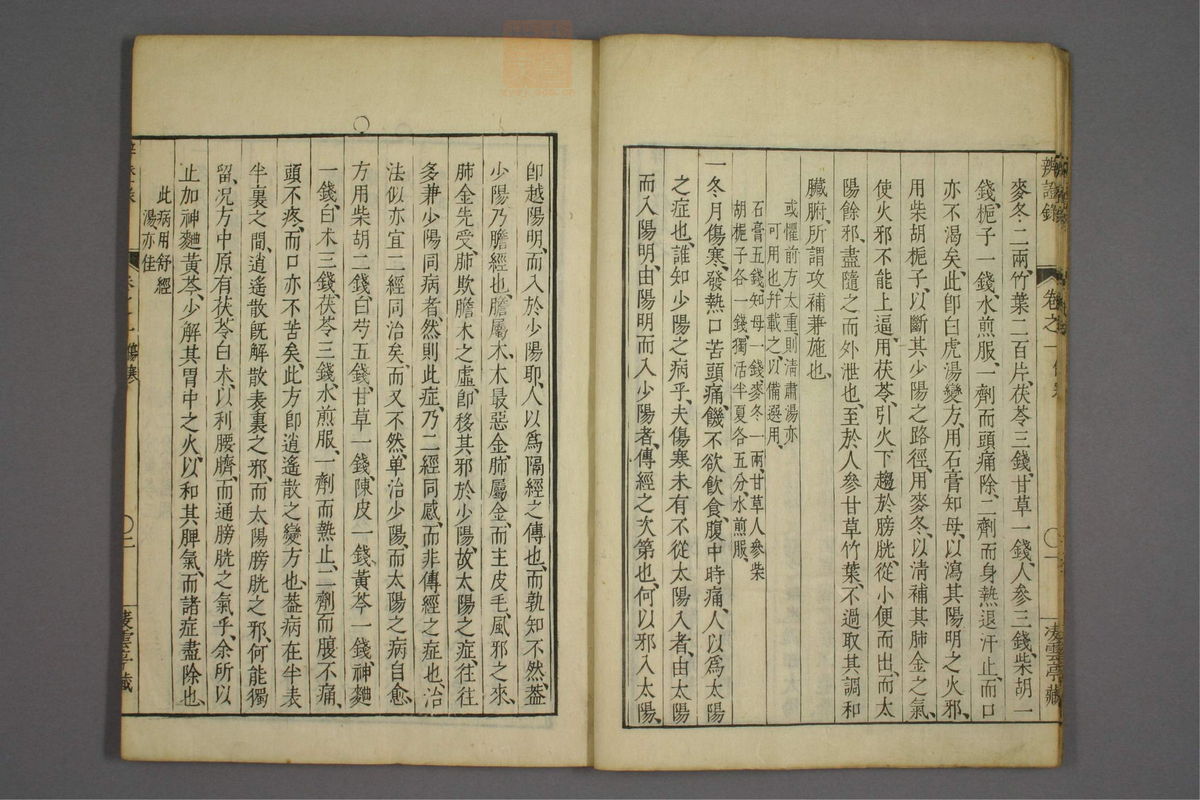 辨證錄 卷之一 凌雲亭藏
麥冬二兩、竹葉二百片、茯苓三錢、甘草一錢、人參三錢、柴胡一
錢、梔子一錢、水煎服、一劑而頭痛除、二劑而身熱退、汗止、而口
亦不渴矣、此卽白虎湯變方、用石膏知母、以瀉其陽明之火邪、
用柴胡梔子、以斷其少陽之路徑、用麥冬、以清補其肺金之氣、
使火邪不能上逼、用茯苓、引火下趨於膀胱、從小便而出、而太
陽餘邪、盡隨之而外泄也、至於人參甘草竹葉、不過取其調和
臟腑、所謂攻補兼施也、
或懼前方太重、則清肅湯亦
可用也、幷載之以備選用、
石膏五錢、知母一錢、麥冬一兩、甘草人參柴
胡梔子各一錢、獨活半夏各五分、水煎服、
一冬月傷寒、發熱口苦頭痛、饑不欲飲食、腹中時痛、人以爲太陽
之症也、誰知少陽之病乎、夫傷寒未有不從太陽入者、由太陽
而入陽明、由陽明而入少陽者、傳經之次第也、何以邪入太陽、
卽越陽明、而入於少陽耶、人以爲隔經之傳也、而孰知不然、蓋
少陽乃膽經也、膽屬木、木最惡金、肺屬金、而主皮毛、風邪之來、
肺金先受、肺欺膽木之虛、卽移其邪於少陽、故太陽之症、往往
多兼少陽同病者、然則此症、乃二經同感、而非傳經之症也、治
法似亦宜二經同治矣、而又不然、单治少陽、而太陽之病自愈、
方用柴胡二錢、白芍五錢、甘草一錢、陳皮一錢、黃芩一錢、神麯
一錢、白朮三錢、茯苓三錢、水煎服、一劑而熱止、二劑而腹不痛、
頭不疼、而口亦不苦矣、此方卽逍遙散之變方也、蓋病在半表
半裏之間、逍遙散旣解散表裏之邪、而太陽膀胱之邪、何能獨
留、况方中原有茯苓白朮、以利腰臍、而通膀胱之氣乎、余所以
止加神麯黃芩、少解其胃中之火、以和其脾氣、而諸症盡除也、
此病用舒經
湯亦佳
〇二
凌雲亭藏